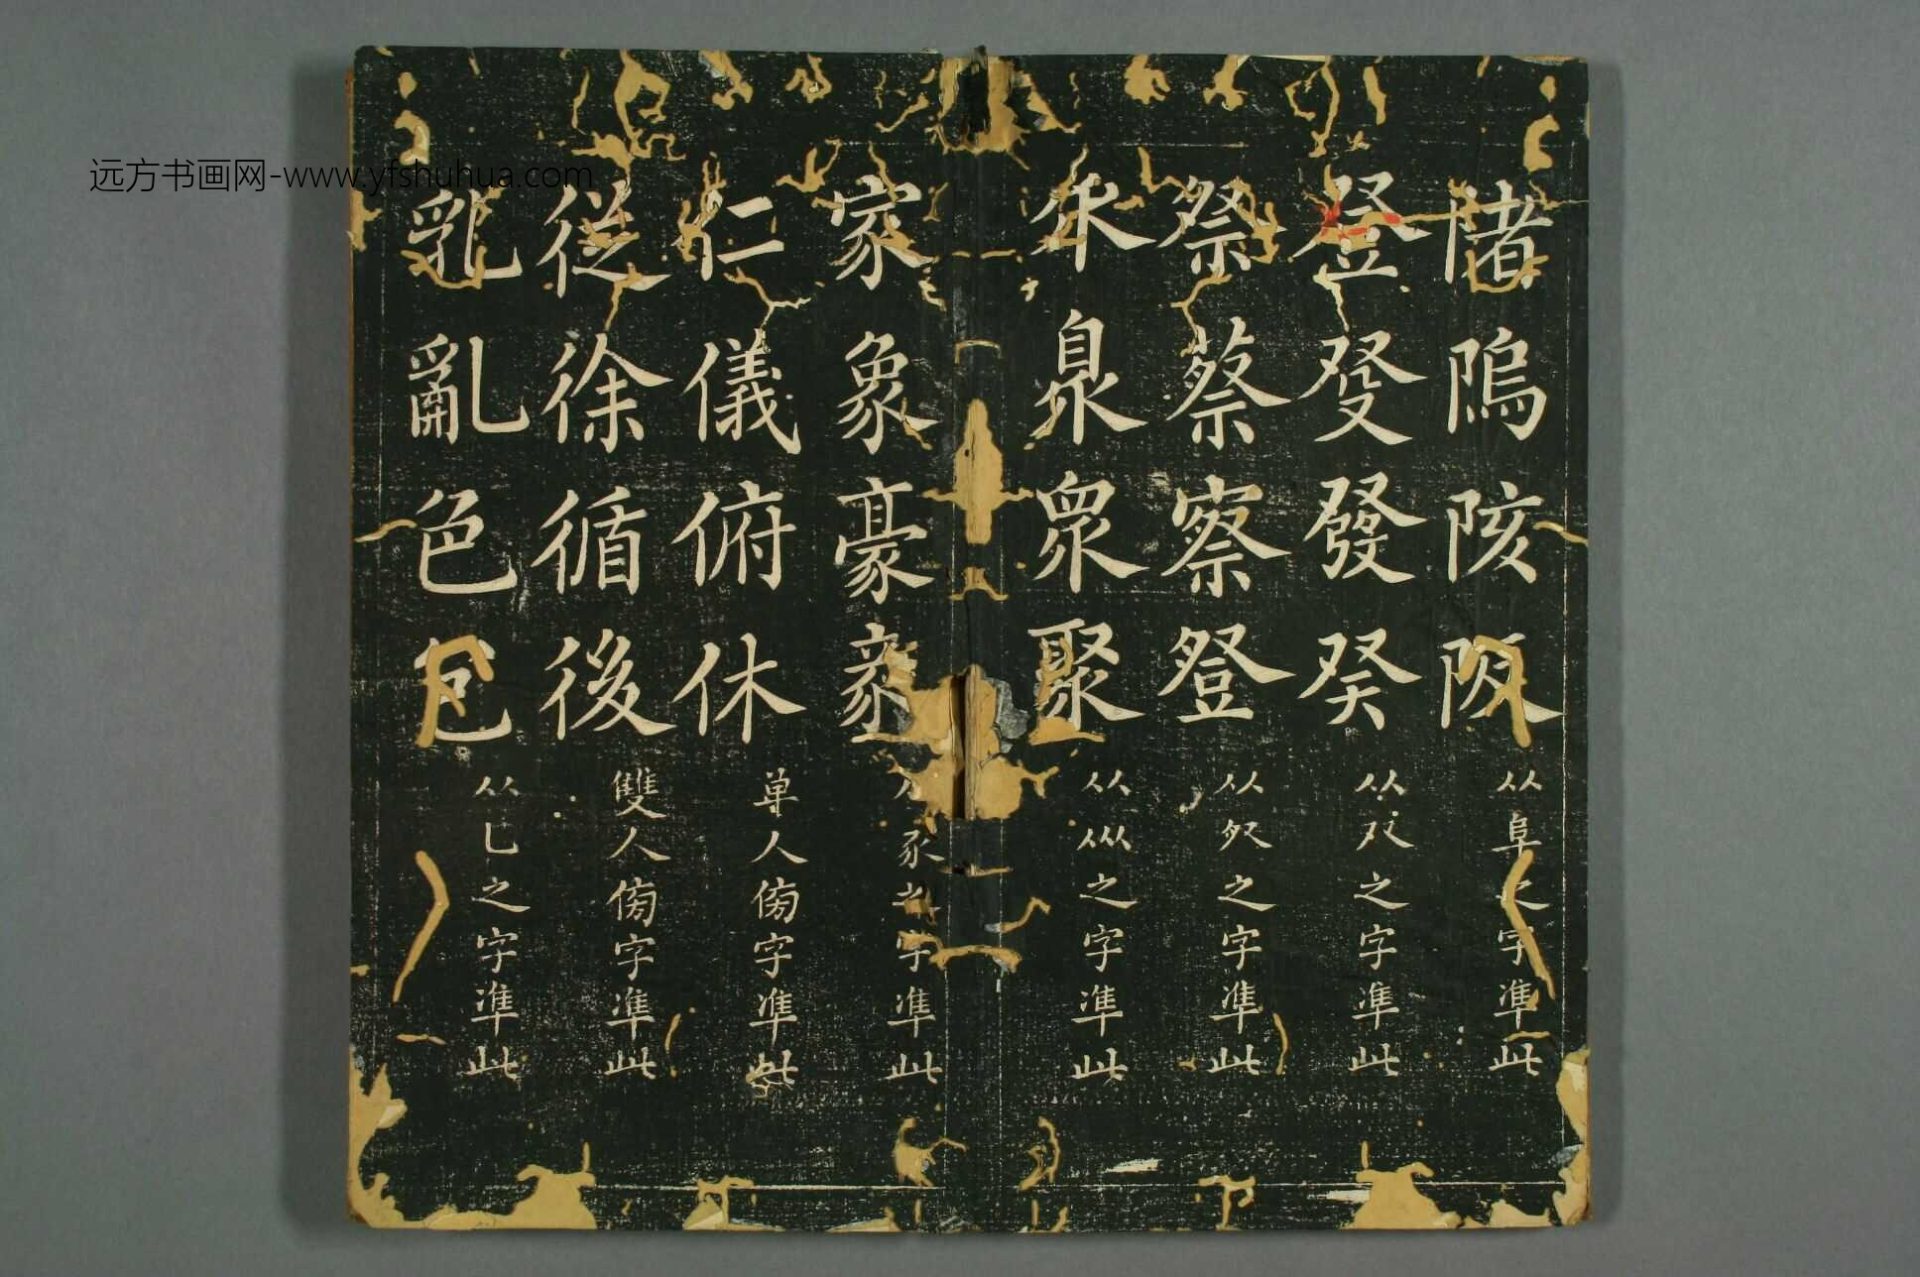 远方书画网-www.yfshuhua.com
陼隖陔阪从阜之字準此
登癹發癸从癶之字準此
祭蔡察登从癶之字準此
乑臮眾聚从乑之字準此
家象豪彖豕之字準此
仁儀俯休单人傍字準此
従徐循後雙人傍字準此
乳亂色包从乚之字準此